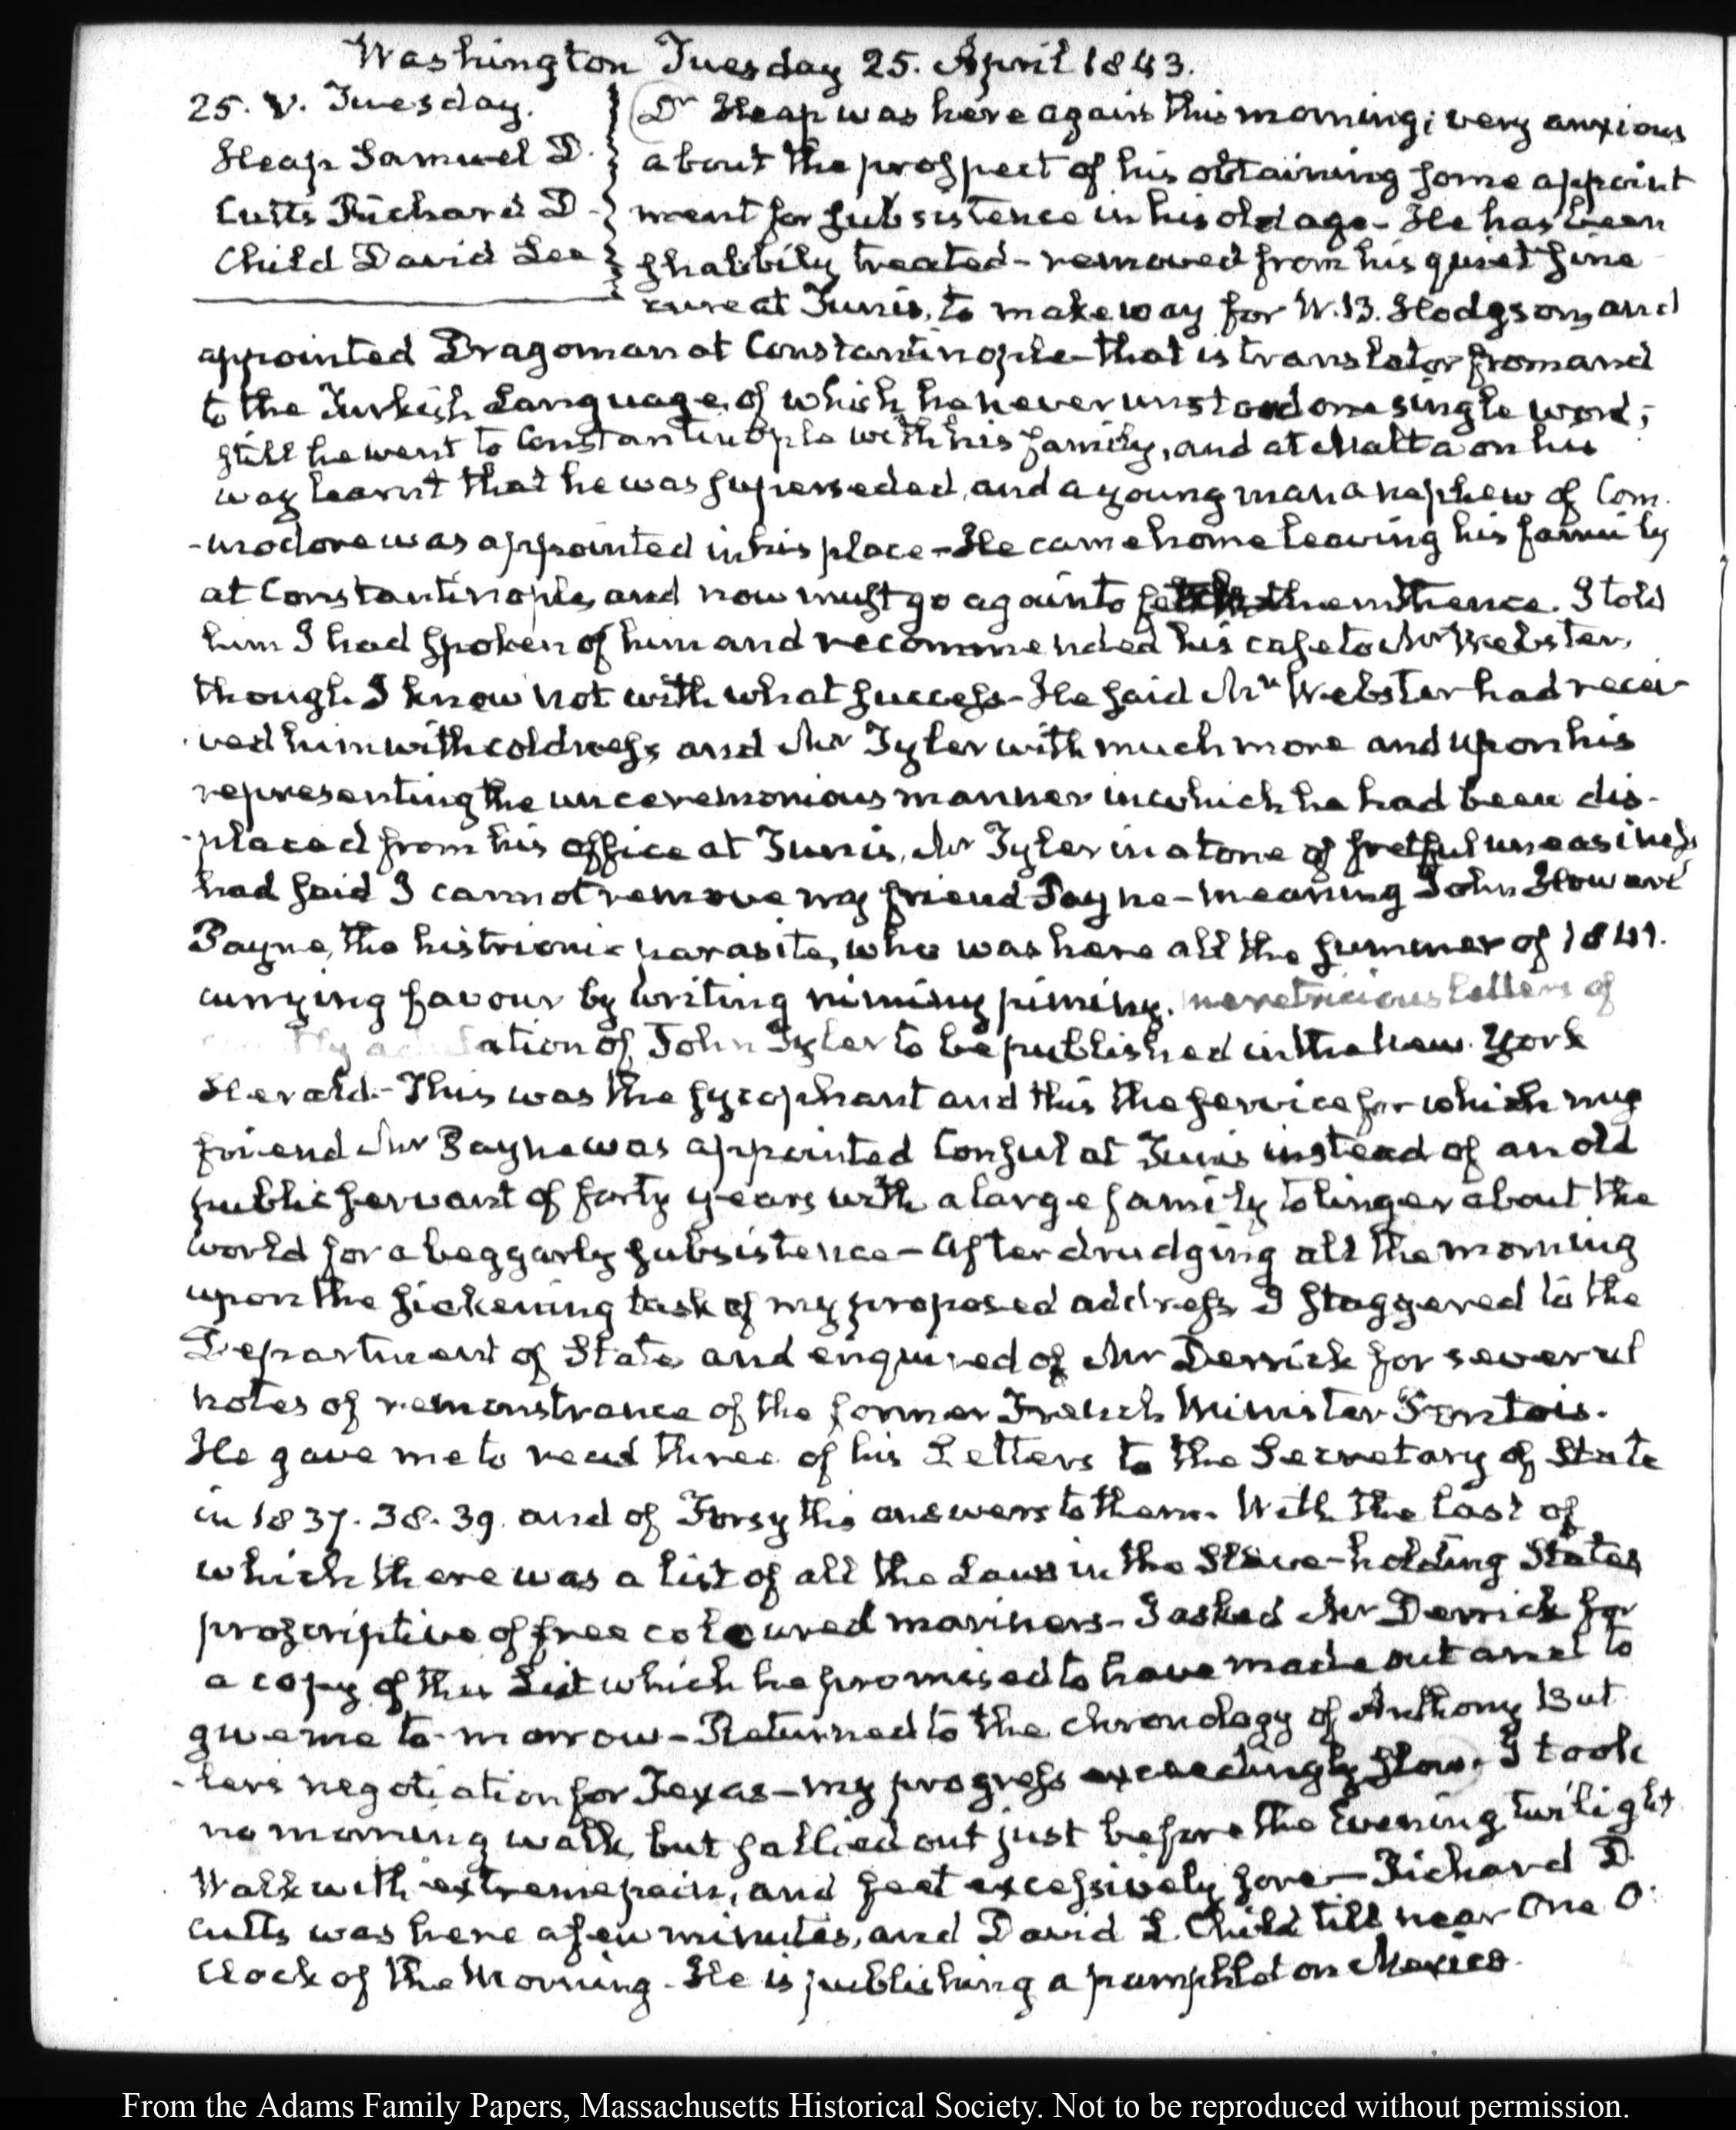 Washington Tuesday 25. April 1843.
25. V. Tuesday.
Heap Samuel D.
Cutts Richard D.
Child David Lee
Dr Heap was here again this morning; very anxious
about the prospect of his obtaining some appoint
ment for subsistence in his old age - He has been
shabbily treated - removed from his quiet sine
cure at Tunis, to make way for W. B. Hodgson, and
appointed Dragoman at Constantinople - that is translator from and
to the Turkish Language, of which he never unstood one single word;
still he went to Constantinople with his family, and at Malta on his
way learnt that he was superseded, and a young man a nephew of Com.
-modore was appointed in his place - He came home leaving his family
at Constantinople, and now must go again to fetch them thence. I told
him I had spoken of him and recommended his case to Mr Webster,
though I know not with what success - He said Mr Webster had recei-
ved him with coldness, and Mr Tyler with much more and upon his
representing the unceremonious manner in which he had been dis-
-placed from his office at Tunis, Mr Tyler in a tone of fretful uneasiness
had said I cannot remove my friend Payne - meaning John Howard
Payne, the histrionic parasite, who was here all the summer of 1841.
currying favour by writing niminy piminy, meretricious letters of
ation of John Tyler to be published in the New York
Herald. - This was the sycophant and this the service for which my
friend Mr Payne was appointed Consul at Tunis instead of an old
public servant of forty years with a large family to linger about the
world for a beggarly subsistence - After drudging all the morning
upon the sickening task of my proposed address I staggered to the
Department of State and enquired of Mr Derrick for several
notes of remonstrance of the former French Minister Pontois.
He gave me to read three of his Letters to the Secretary of State
in 1837. 38. 39. and of Forsyths answers to them. With the last of
which there was a list of all the Laws in the Slave-holding States
proscriptive of free coloured mariners - I asked Mr Derrick for
a copy of this List which he promised to have made out and to
give me to-morrow - Returned to the chronology of Anthony But
-lers negotiation for Texas - my progress exceedingly slow. I took
no morning walk, but sallied out just before the Evening twilight
Walk with extreme pain, and feet excessively sore - Richard D.
Cutts was here a few minutes, and David L. Child till near One O'
Clock of the Morning - He is publishing a pamphlet on Mexico.
From the Adams Family Papers, Massachusetts Historical Society. Not to be reproduced without permission.